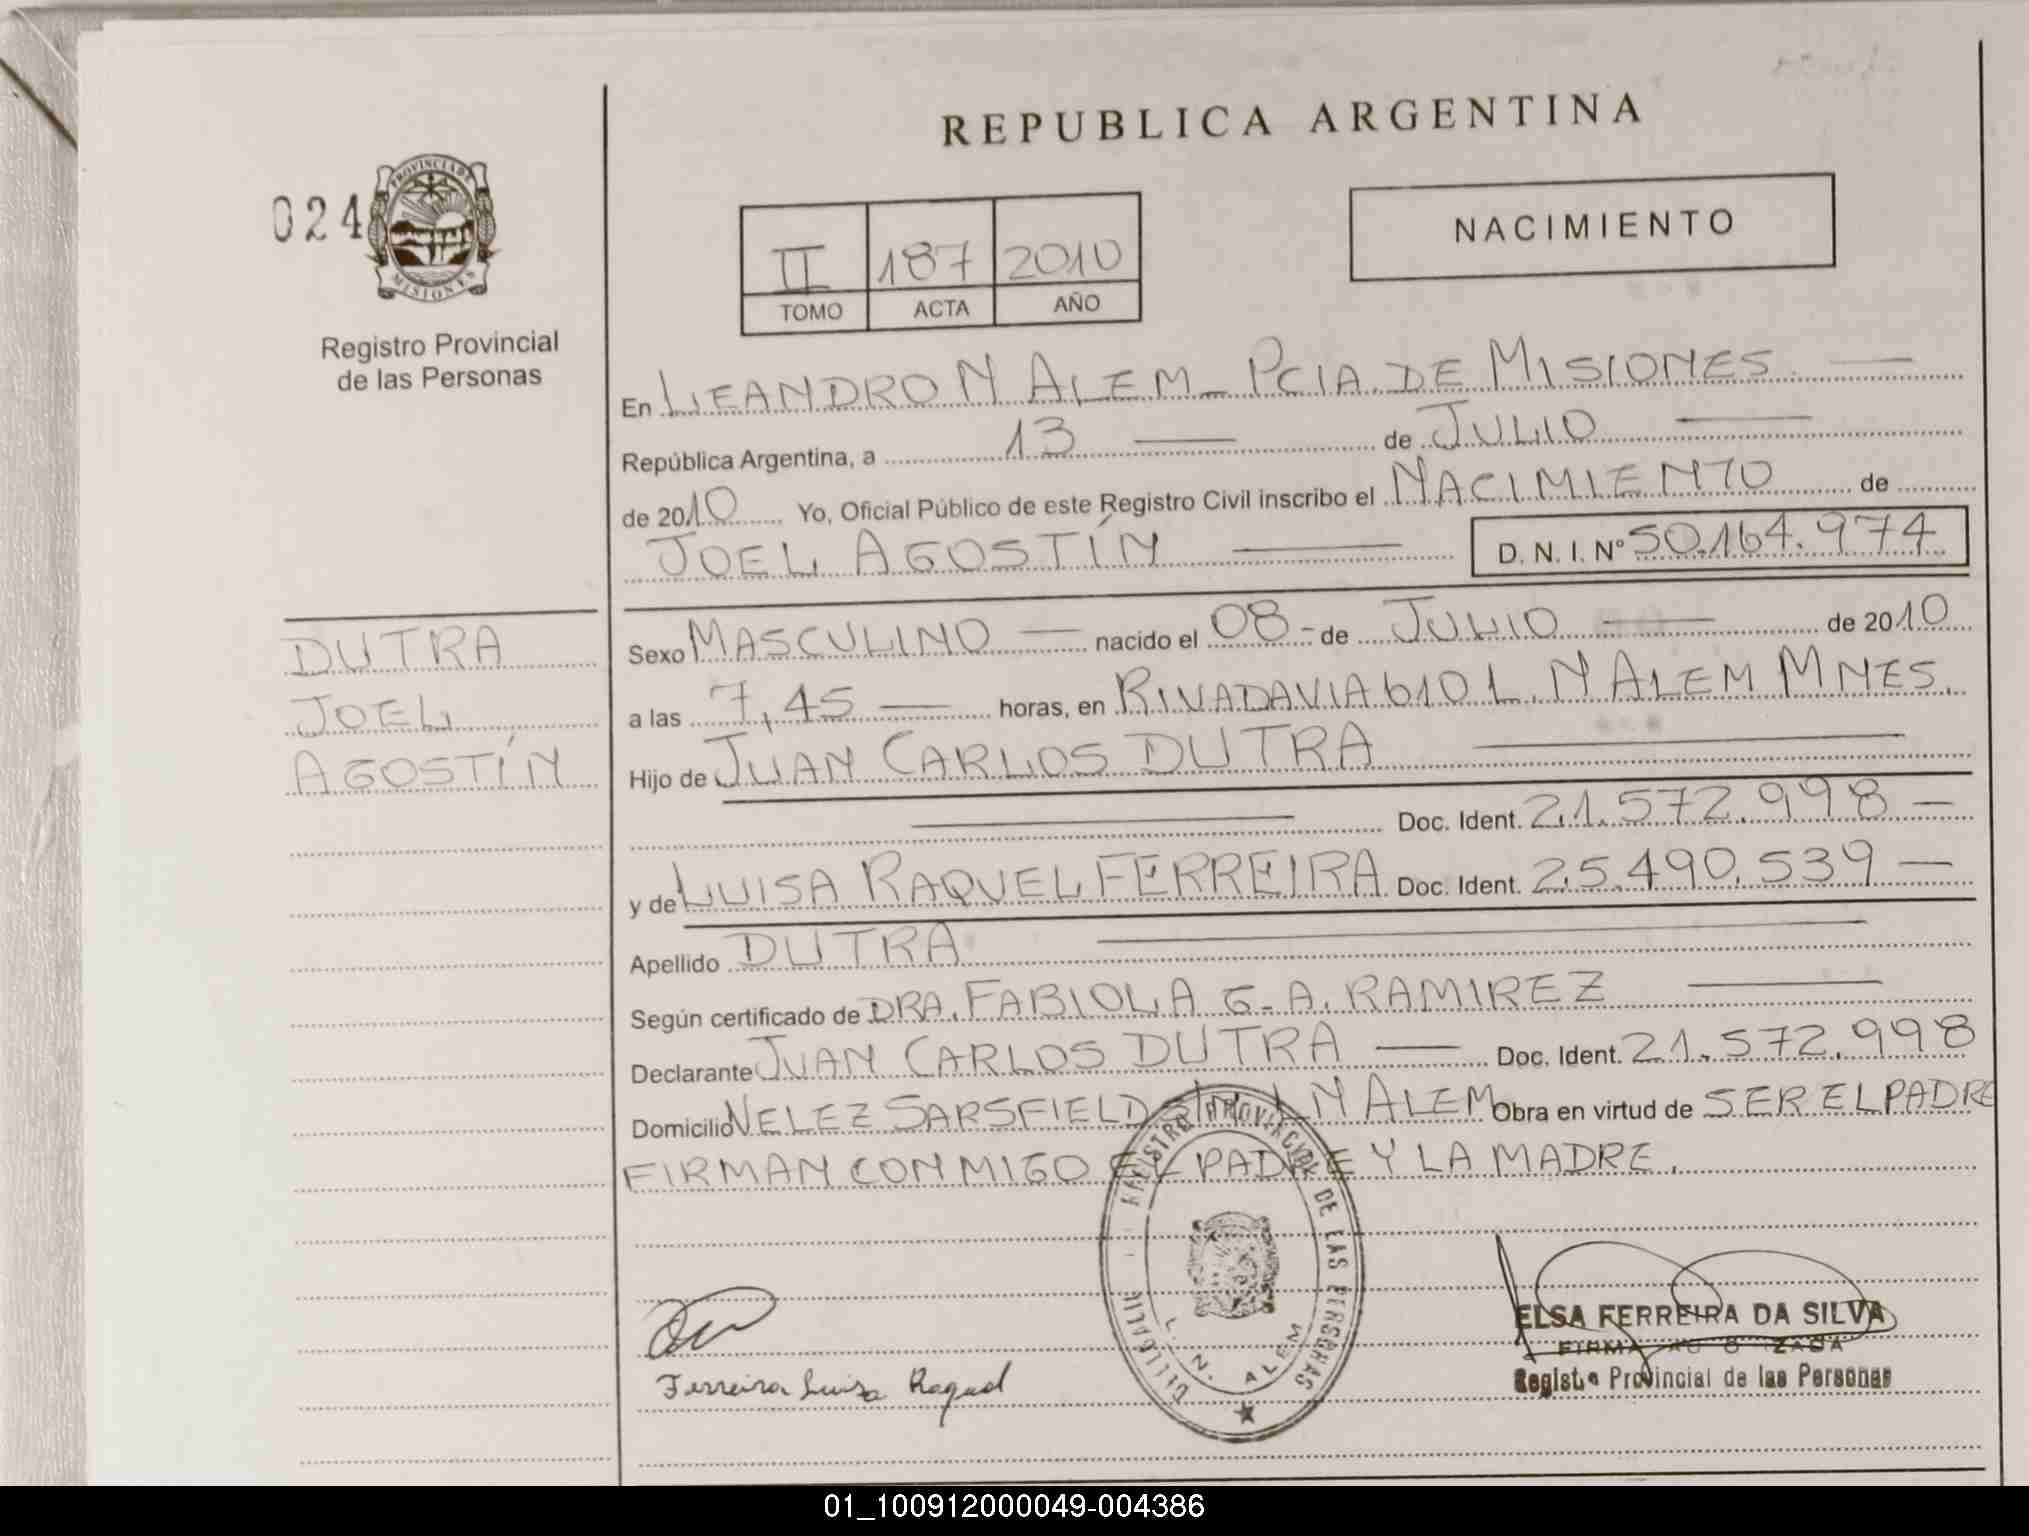 REPUBLICA ARGENTINA
024
PROVINCIA DE
MISIONES
Registro Provincial
de las Personas
II 187 2010
TOMO ACTA AÑO
NACIMIENTO
En LEANDRO N ALEM_ PCIA. DE MISIONES.
República Argentina, a 13 de JULIO
de 2010 Yo, Oficial Público de este Registro Civil inscribo el NACIMIENTO de
JOEL AGOSTÍN D. N. I. Nº 50.164.974
DUTRA
JOEL
AGOSTÍN
Sexo MASCULINO nacido el 08- de JULIO de 2010
a las 7,45 horas, en RIVADAVIA 610 L. N ALEM MNES.
Hijo de JUAN CARLOS DUTRA
Doc. Ident. 21.572.998
y de LUISA RAQUEL FERREIRA Doc. Ident. 25.490.539
Apellido DUTRA
Según certificado de DRA. FABIOLA G. A. RAMIREZ
Declarante JUAN CARLOS DUTRA Doc. Ident. 21.572.998
Domicilio VELEZ SARSFIELD N ALEM Obra en virtud de SER EL PADRE
FIRMAN CONMIGO EL PADRE Y LA MADRE.
REGISTRO PROVINCIAL DE LAS PERSONAS
L. N. ALEM
Ferreira Luisa Raquel
ELSA FERREIRA DA SILVA
Provincial de las Personas
01_100912000049-004386